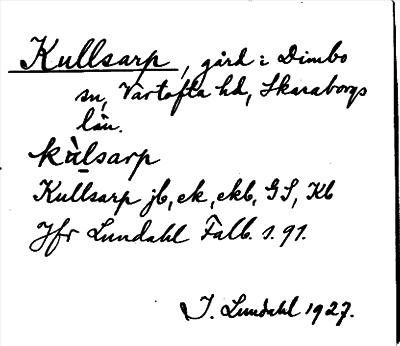 Kullsarp, gård i Dimbo
sn, Vartofta hd, Skaraborgs
län.
kùlsarp
Kullsarp jb, ek, ekb, GS, Kb
Jfr Lundahl Falb. s. 91.
I. Lundahl 1927.